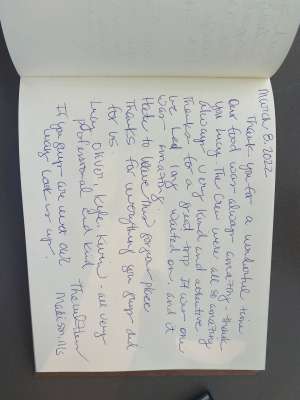 March 8, 2022
Thank you for a wonderful time
Our food was always amazing - thank
you Lucy. The crew were all so amazing
always very kind and attentive
Thanks for a great trip. It was one
we had long waited on, and it
was amazing.
Hate to leave this gorgeous place
Thanks for everything you guys did
for us.
Lucy, Oliver, Kyle, Kevin - all very
professional and kind.
If you guys are ever out
way look us up.
Madison, Ms